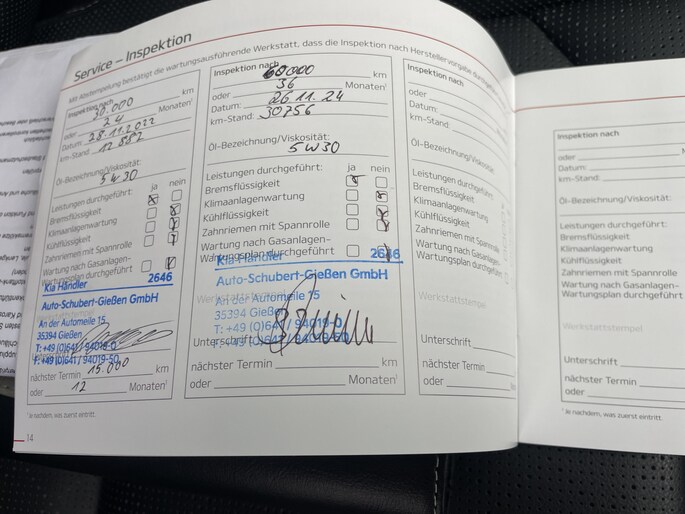 Service – Inspektion
Mit Abstempelung bestätigt die wartungsausführende Werkstatt, dass die Inspektion nach Herstellervorgabe durchgeführt
Inspektion nach 30.000
oder 24 Monaten¹
Datum: 28.11.2022
km-Stand: 12 882
Öl-Bezeichnung/Viskosität:
5W30
Leistungen durchgeführt: ja nein
Bremsflüssigkeit
Klimaanlagenwartung
Kühlflüssigkeit
Zahnriemen mit Spannrolle
Wartung nach Gasanlagen-
Wartungsplan durchgeführt
Kia Händler 2646
Auto-Schubert-Gießen GmbH
An der Automeile 15
35394 Gießen
T: +49 (0)641 / 94019-0
F: +49 (0)641 / 94019-50
nächster Termin 15.000 km
oder 12 Monaten¹
¹ Je nachdem, was zuerst eintritt.
14
Inspektion nach 60000 km
oder 36 Monaten¹
Datum: 26.11.24
km-Stand: 30756
Öl-Bezeichnung/Viskosität:
5W30
Leistungen durchgeführt: ja nein
Bremsflüssigkeit
Klimaanlagenwartung
Kühlflüssigkeit
Zahnriemen mit Spannrolle
Wartung nach Gasanlagen-
Wartungsplan durchgeführt
Kia Händler 2646
Auto-Schubert-Gießen GmbH
Werkstattstempel
An der Automeile 15
35394 Gießen
T: +49 (0)641 / 94019-0
Unterschrift
nächster Termin km
oder Monaten¹
Inspektion nach
oder
Datum:
km-Stand:
Öl-Bezeichnung/Viskosität:
Leistungen durchgeführt:
Bremsflüssigkeit
Klimaanlagenwartung
Kühlflüssigkeit
Zahnriemen mit Spannrolle
Wartung nach Gasanlagen-
Wartungsplan durchgeführt
Werkstattstempel
Unterschrift
nächster Termin
oder
Inspektion nach
oder
Datum:
km-Stand:
Öl-Bezeichnung/Viskosität:
Leistungen durchgeführt:
Bremsflüssigkeit
Klimaanlagenwartung
Kühlflüssigkeit
Zahnriemen mit Spannrolle
Wartung nach Gasanlagen-
Wartungsplan durchgeführt
Werkstattstempel
Unterschrift
nächster Termin
oder
¹ Je nachdem, was zuerst eintritt.